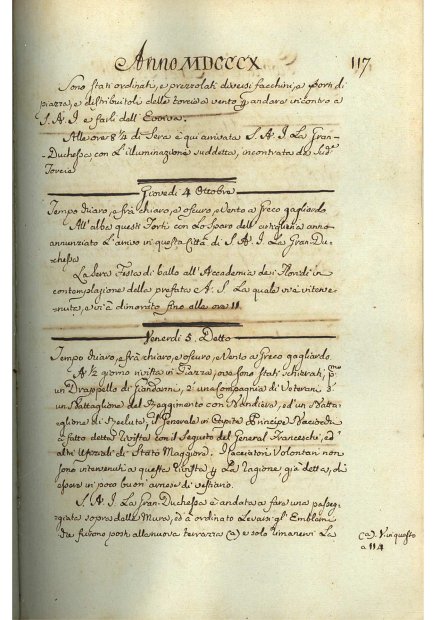 Anno MDCCCX 117
Sono stati ordinati, e prezzolati diversi facchini, e porti di
piazza, e distribuitole delle torcia a vento p andare incontro a
S. A. I e farli dell' Evviva.
Alle ore 8 1/4 di Sera è qui arrivata S. A. I. La Gran-
Duchessa con l'illuminazione suddetta, incontrata da Sudᵉ
Torcie
Giovedi 4 Ottobre
Tempo chiaro, e frà chiaro, e oscuro, e Vento a Greco gagliardo
All' alba questi Forti con lo Sparo dell' artiglieria anno
annunziato L'arrivo in questa Città di S. A. I. La Gran-Du-
chessa
La Sera Festa di ballo all' Accademia dei Floridi in
contemplazione della prefata A. S. La quale vi è interve-
nuta, e vi è dimorata fino alle ore 11
Venerdi 5. Detto
Tempo chiaro, e frà chiaro, e oscuro, e Vento a Greco gagliardo.
A 1/2 giorno rivista in Piazza, ove sono stati schierati, pᵐᵒ
un Drappello di Giandarmi, 2: una Compagnia di Veterani 3:
un Battaglione del Reggimento con Bandiera, ed' un Batta-
glione di Reclute, il Generale in Capite Principe
à fatto detta Rivista con il Seguito del General Franceschi, ed'
altri Uffiziali di Stato Maggiore. I Cacciatori Volontari non
sono intervenuti a questa Rivista p La ragione già detta, di
essere in poco buon' arnese di vestiario.
S. A. I. La Gran-Duchessa è andata a fare una passeg-
giata sopra delle Mura, ed à ordinato Levarsi gl' Emblemi
che furono posti alla nuova terrazza (a) e solo rimanervi La
(a). Vedi questo
a 114